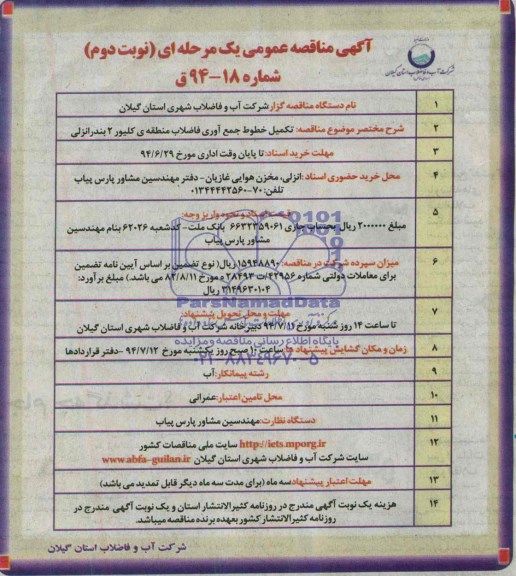 آگهی مناقصه عمومی یک مرحله ای (نوبت دوم)
شماره ۱۸-۹۴ ق
شرکت آب و فاضلاب استان گیلان
۱ نام دستگاه مناقصه گزار: شرکت آب و فاضلاب شهری استان گیلان
۲ شرح مختصر موضوع مناقصه: تکمیل خطوط جمع آوری فاضلاب منطقه ی کلیور ۲ بندرانزلی
۳ مهلت خرید اسناد: تا پایان وقت اداری مورخ ۹۴/۶/۲۹
۴ محل خرید حضوری اسناد: انزلی، مخزن هوایی غازیان - دفتر مهندسین مشاور پارس پیاب
تلفن: ۷۰-۰۱۳۴۴۴۴۲۵۶۰
۵ قیمت اسناد و نحوه واریز وجه:
مبلغ ۲۰۰۰۰۰۰ ریال بحساب جاری ۶۶۳۲۳۵۹۰۶۱ بانک ملت - کدشعبه ۶۲۰۲۶ بنام مهندسین
مشاور پارس پیاب
۶ میزان سپرده شرکت در مناقصه: ۱۵۹۴۸۸۹۰ ریال( نوع تضمین بر اساس آیین نامه تضمین
برای معاملات دولتی شماره ۴۲۹۵۶/ت ۲۸۴۹۳ ه مورخ ۸۲/۸/۱۱ می باشد.) مبلغ برآورد:
۳۱۴۹۶۳۰۱۰۴ ریال
۷ مهلت و محل تحویل پیشنهاد:
تا ساعت ۱۴ روز شنبه مورخ ۹۴/۷/۱۱ دبیرخانه شرکت آب و فاضلاب شهری استان گیلان
۸ زمان و مکان گشایش پیشنهاد ها: ساعت ۱۰ صبح روز یکشنبه مورخ ۹۴/۷/۱۲ - دفتر قراردادها
۹ رشته پیمانکار: آب
۱۰ محل تامین اعتبار: عمرانی
۱۱ دستگاه نظارت: مهندسین مشاور پارس پیاب
۱۲ http://iets.mporg.ir سایت ملی مناقصات کشور
سایت شرکت آب و فاضلاب شهری استان گیلان www.abfa-guilan.ir
۱۳ مهلت اعتبار پیشنهاد: سه ماه (برای مدت سه ماه دیگر قابل تمدید می باشد)
۱۴ هزینه یک نوبت آگهی مندرج در روزنامه کثیرالانتشار استان و یک نوبت آگهی مندرج در
روزنامه کثیرالانتشار کشور بعهده برنده مناقصه میباشد.
شرکت آب و فاضلاب استان گیلان
ParsNamadData
پایگاه اطلاع رسانی مناقصه و مزایده
۰۲۱-۸۸۳۴۹۶۷۰-۵